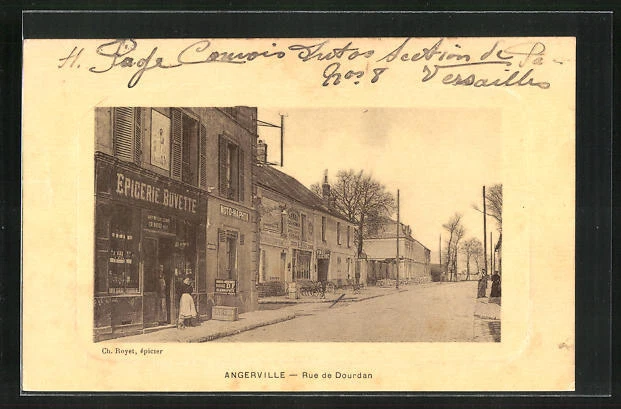 H. Page Convois Autos Section de Pa-
No. 8 Versailles
EPICERIE BUVETTE
AUTO-NAPHTA
Ch. Royet, épicier
ANGERVILLE — Rue de Dourdan